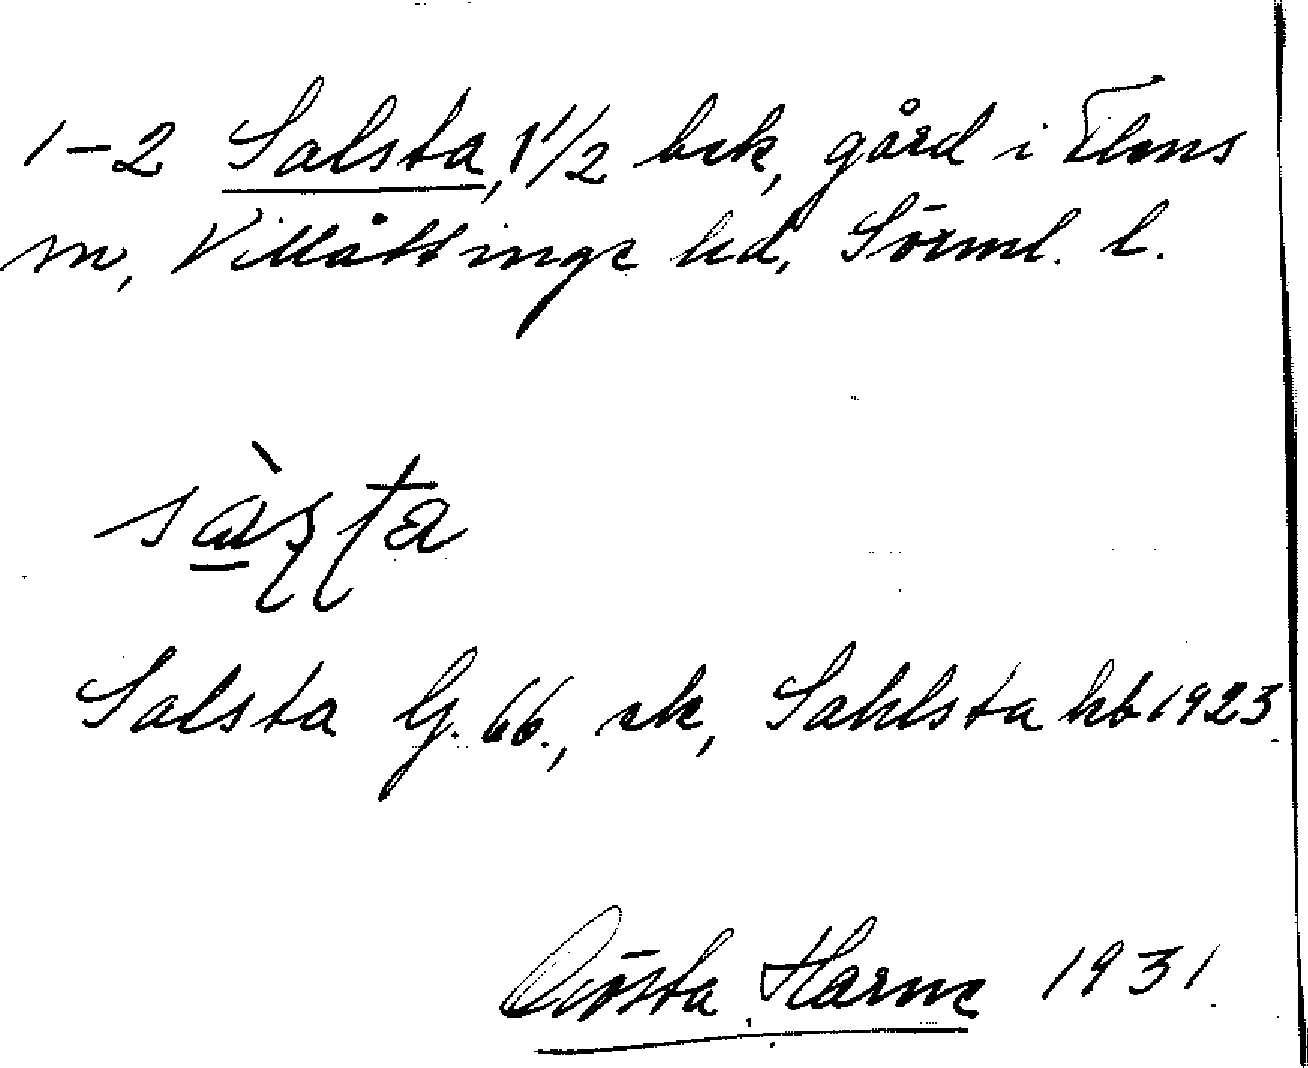 1-2 Salsta, 1 1/2 bck, gård i Flens
sn, Villåttinge hd, Sörml. l.
Salsta G. 66., ek, Sahlsta kb 1923
Gösta Harne 1931